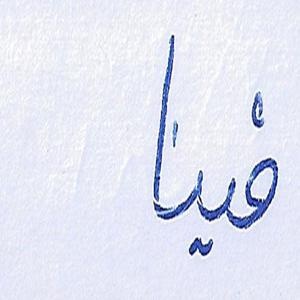 فينا